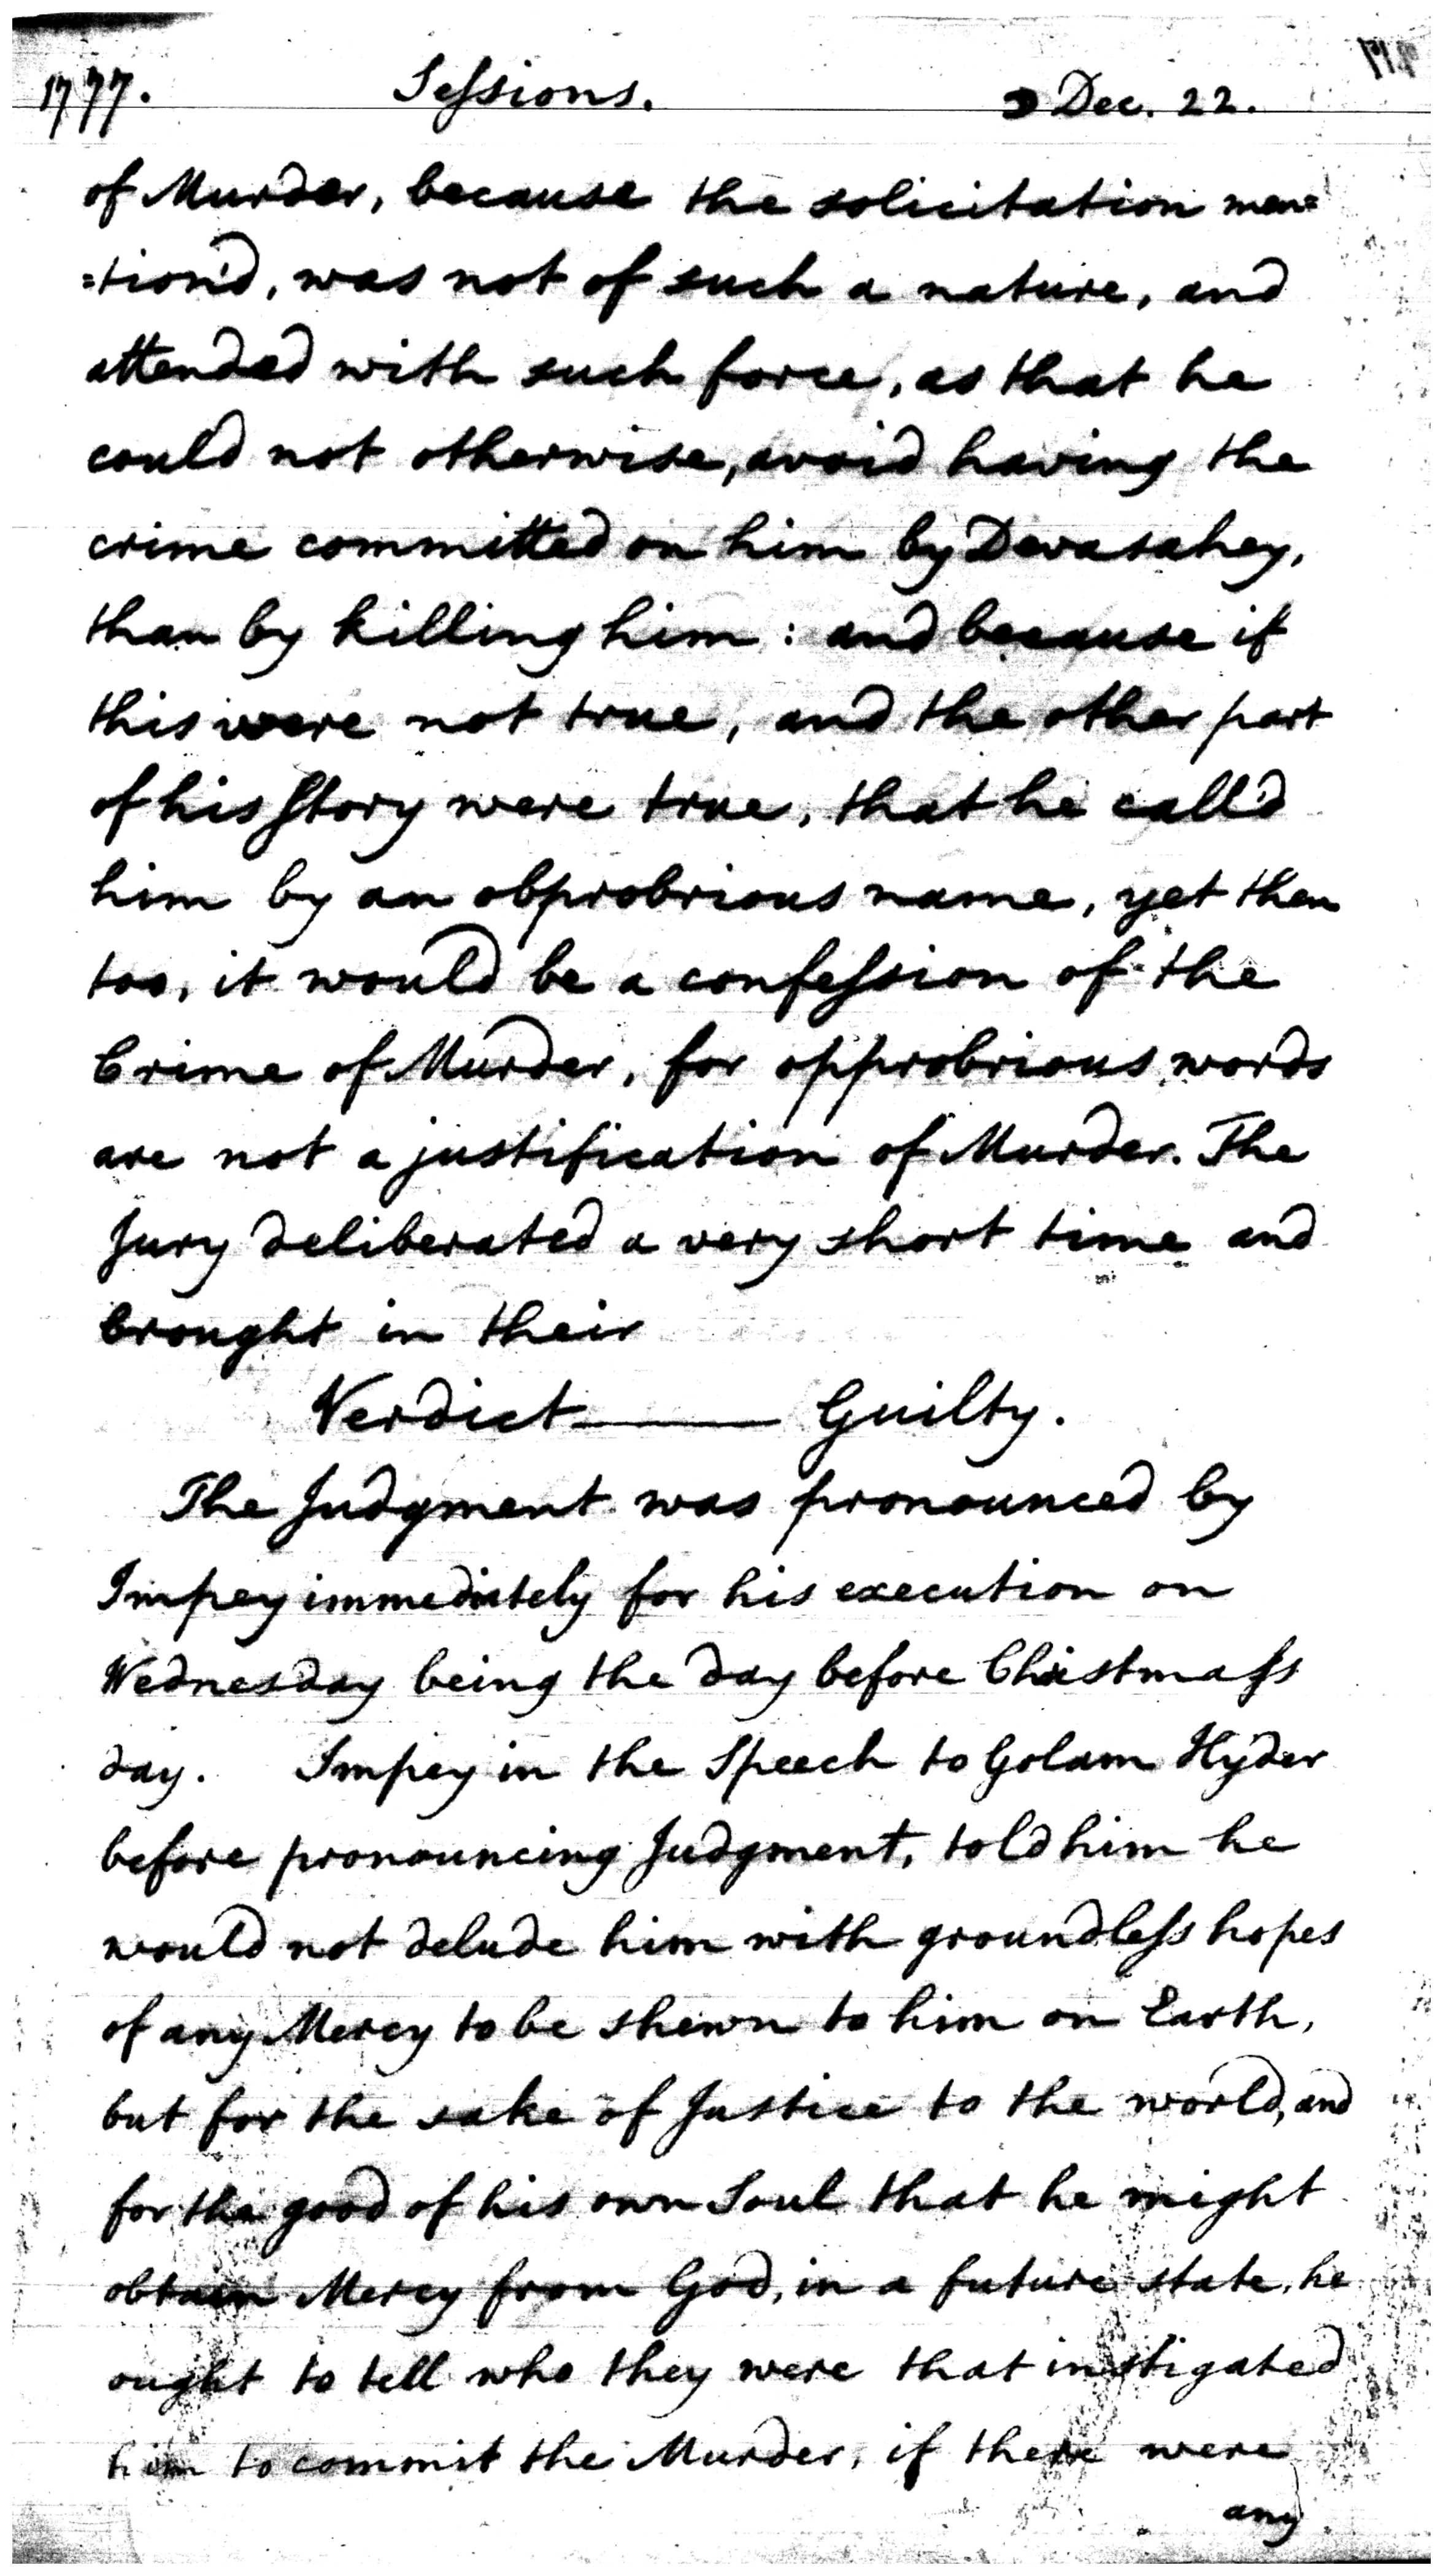 1777. Sessions. ☽ Dec. 22.
of Murder, because the solicitation men=
=tion'd, was not of such a nature, and
attended with such force, as that he
could not otherwise, avoid having the
crime committed on him by Devasahey,
than by killing him : and because if
this were not true, and the other part
of his Story were true, that he call'd
him by an obprobrious name, yet then
too, it would be a confession of the
Crime of Murder, for opprobrious words
are not a justification of Murder. The
Jury deliberated a very short time and
brought in their
Verdict——— Guilty.
The Judgment was pronounced by
Impey immediately for his execution on
Wednesday being the day before Christmass
day. Impey in the Speech to Golam Hyder
before pronouncing Judgment, told him he
would not delude him with groundless hopes
of any Mercy to be shewn to him on Earth,
but for the sake of Justice to the world, and
for the good of his own Soul that he might
obtain Mercy from God, in a future state, he
ought to tell who they were that instigated
him to commit the Murder, if there were
any